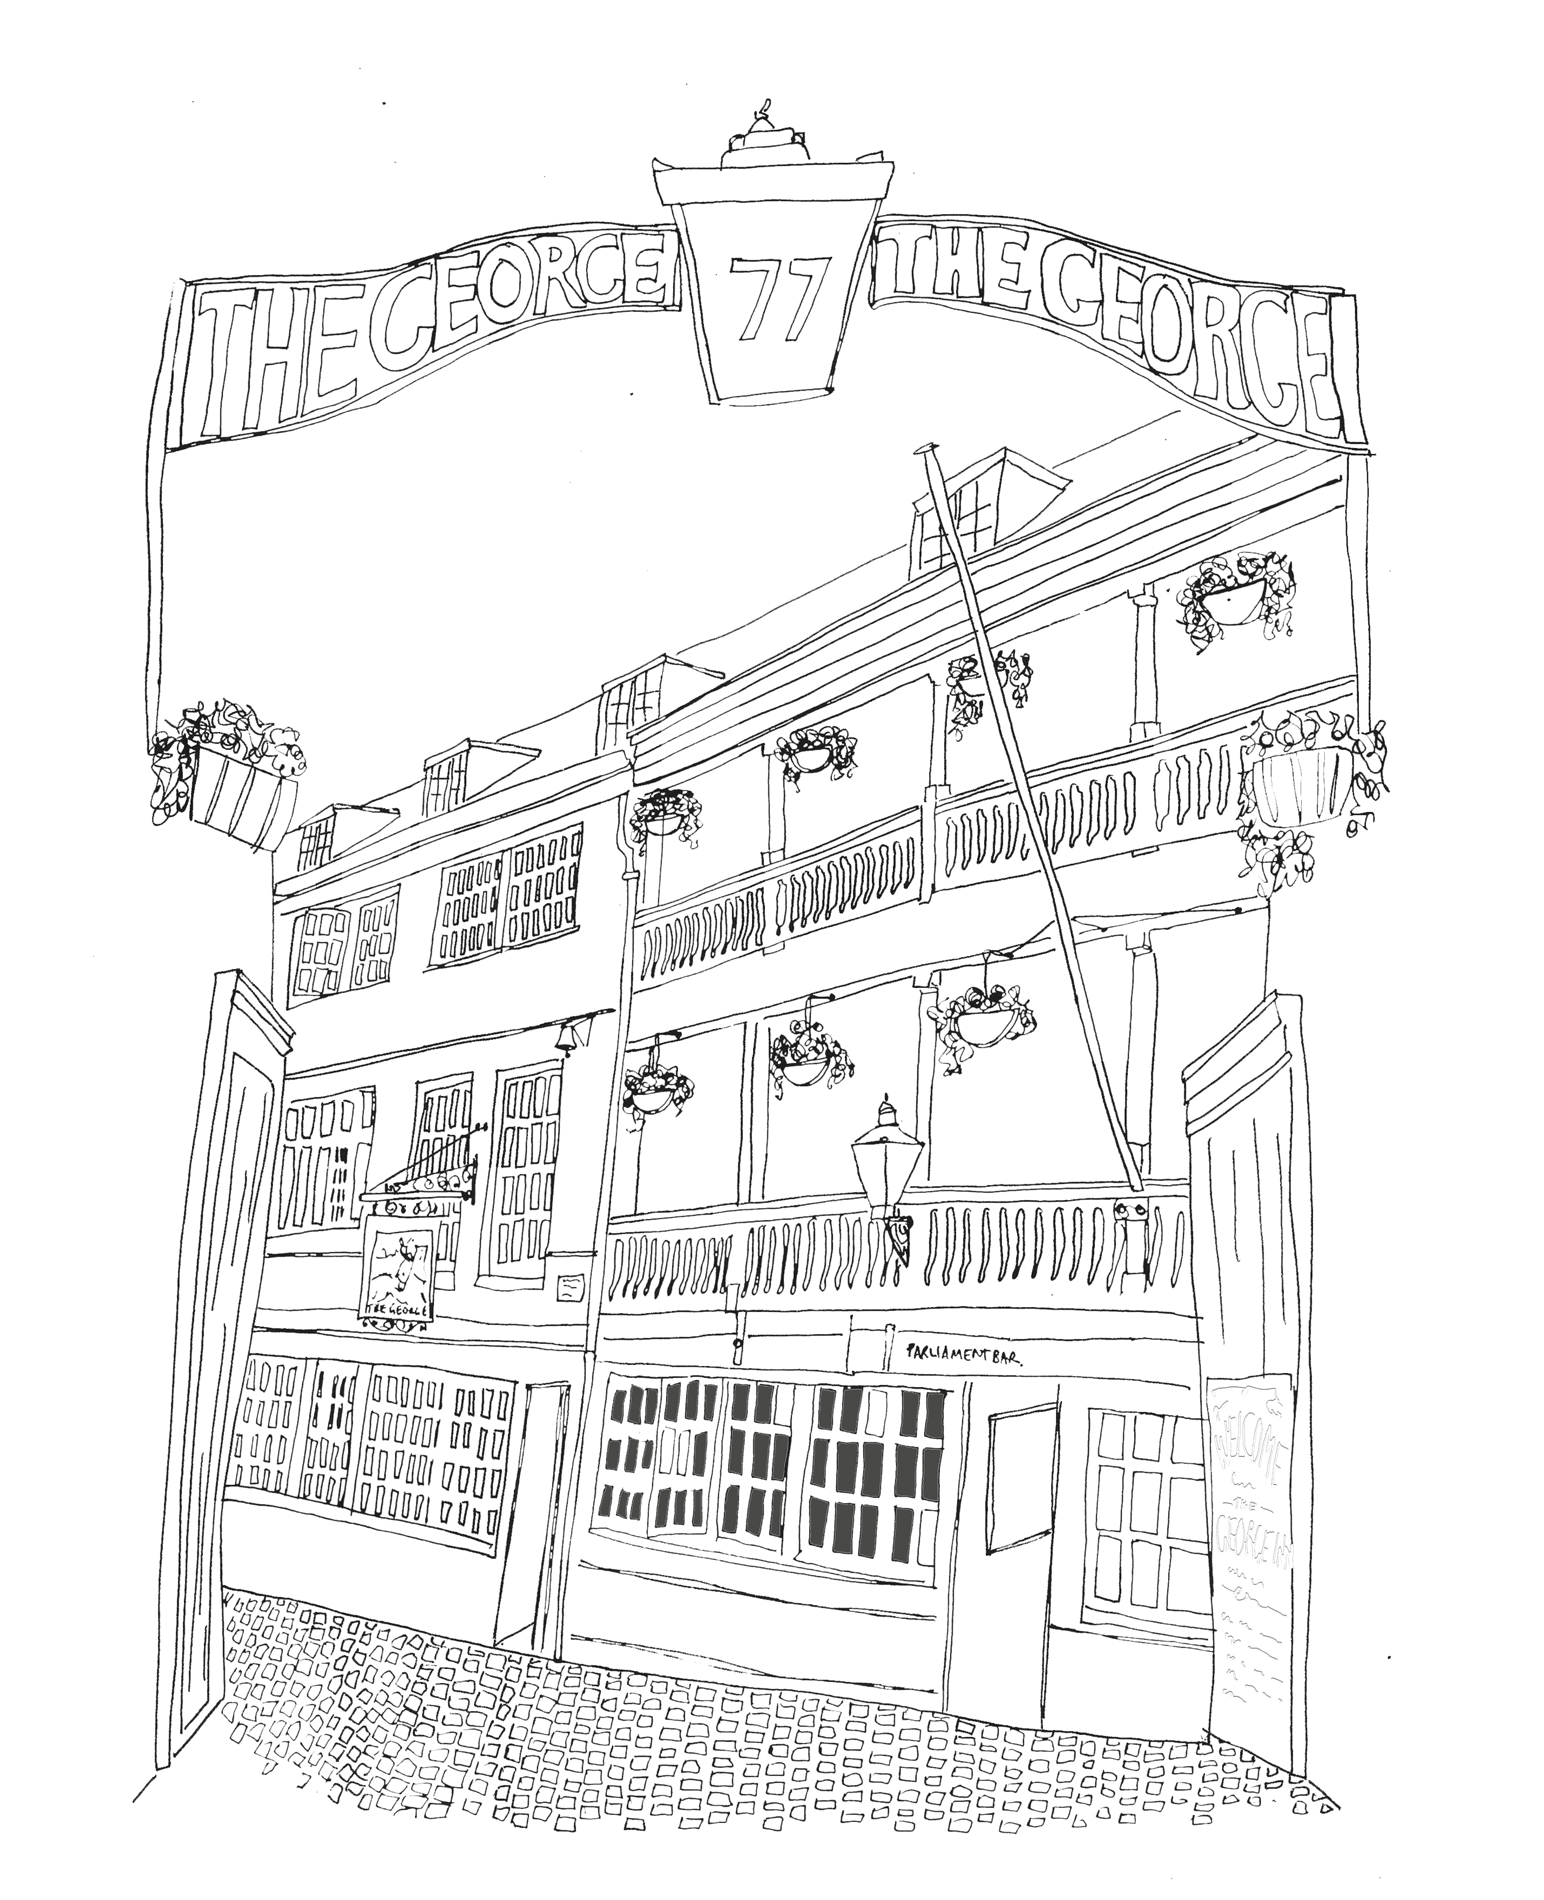 THE GEORGE
77
THE GEORGE
THE GEORGE
PARLIAMENT BAR.
WELCOME
THE
GEORGE INN